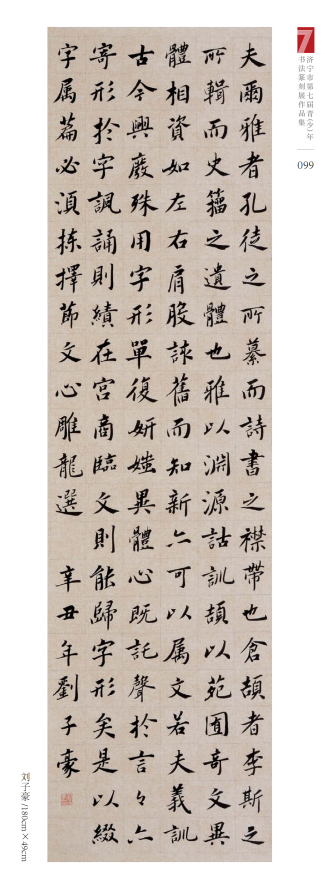 7
济宁市第七届青(少)年
书法篆刻展作品集
099
夫爾雅者孔徒之所纂而詩書之襟帶也倉頡者李斯之
所輯而史籀之遺體也雅以淵源詁訓頡以苑囿奇文異
體相資如左右肩股該舊而知新亦可以属文若夫義訓
古今興廢殊用字形單復妍媸異體心既託聲於言々亦
寄形於字諷誦則績在宮商臨文則能歸字形矣是以綴
字属篇必須揀擇節文心雕龍選 辛丑年劉子豪
刘子豪/180cm×49cm